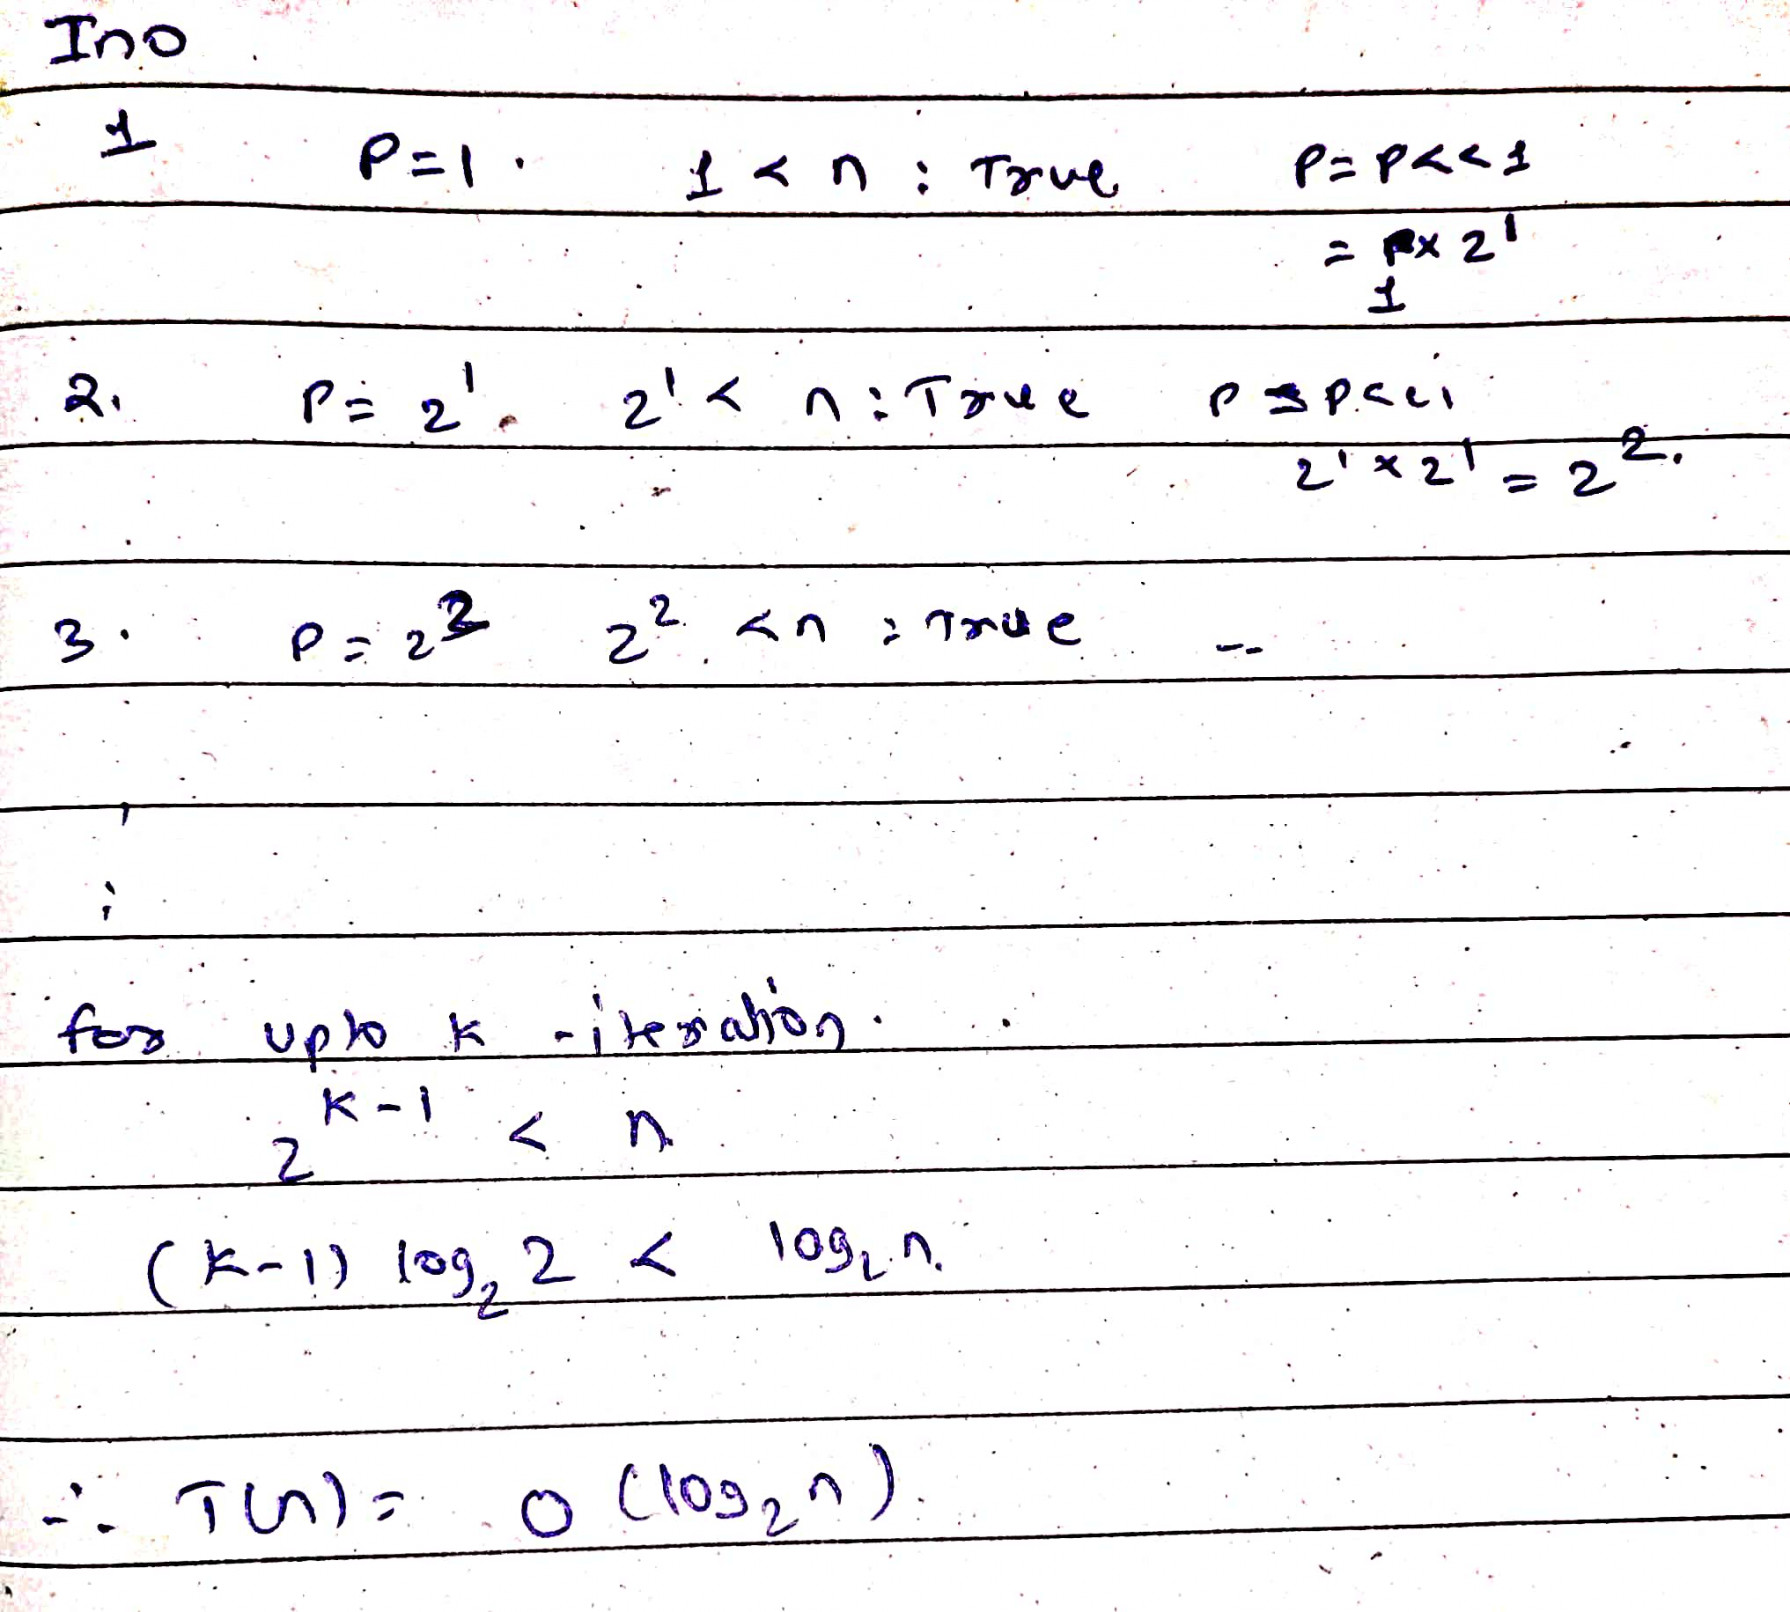 Ino
1 P=1. 1 < n : True P = P<<1
= P×2¹
1
2. P = 2¹. 2¹ < n : True P = P<<1
2¹ × 2¹ = 2².
3. P = 2² 2² < n : True --
for upto k - iteration.
2^(k-1) < n
(k-1) log₂ 2 < log₂ n.
∴ T(n) = O (log₂ n).